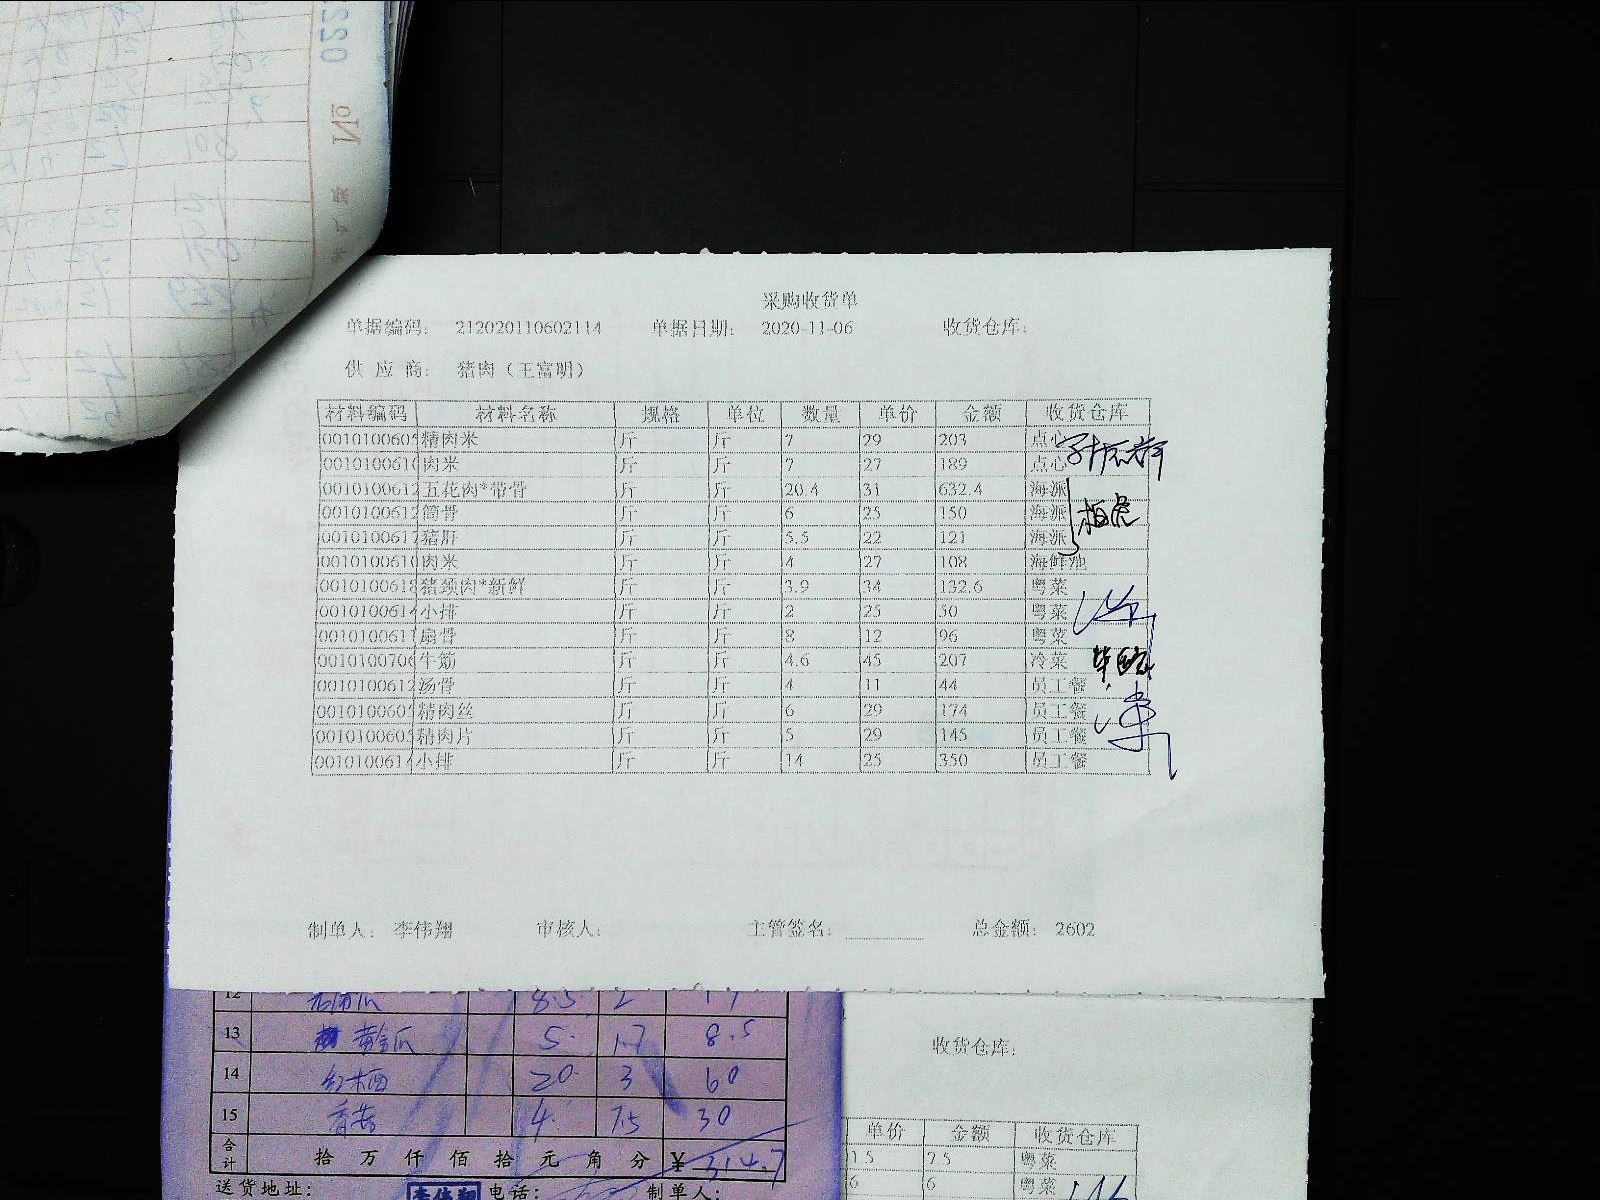 No 022
采购收货单
单据编码： 212020110602114 单据日期： 2020-11-06 收货仓库：
供 应 商： 猪肉（王富明）
材料编码 材料名称 规格 单位 数量 单价 金额 收货仓库
0010100605 精肉米 斤 斤 7 29 203 点心
0010100610 肉米 斤 斤 7 27 189 点心
0010100612 五花肉*带骨 斤 斤 20.4 31 632.4 海派
0010100612 筒骨 斤 斤 6 25 150 海派
0010100617 猪肝 斤 斤 5.5 22 121 海派
0010100610 肉米 斤 斤 4 27 108 海鲜池
0010100618 猪颈肉*新鲜 斤 斤 3.9 34 132.6 粤菜
0010100614 小排 斤 斤 2 25 50 粤菜
0010100611 扇骨 斤 斤 8 12 96 粤菜
0010100706 牛筋 斤 斤 4.6 45 207 冷菜
0010100612 汤骨 斤 斤 4 11 44 员工餐
0010100605 精肉丝 斤 斤 6 29 174 员工餐
0010100605 精肉片 斤 斤 5 29 145 员工餐
0010100614 小排 斤 斤 14 25 350 员工餐
制单人： 李伟翔 审核人： 主管签名： 总金额： 2602
12 8.5 2 17
13 黄金瓜 5 1.7 8.5
14 20 3 60
15 香菇 4 7.5 30
合计 拾 万 仟 佰 拾 元 角 分 ¥ 314.7
送货地址： 李伟翔 电话： 制单人：
收货仓库：
单价 金额 收货仓库
15 75 粤菜
6 6 粤菜